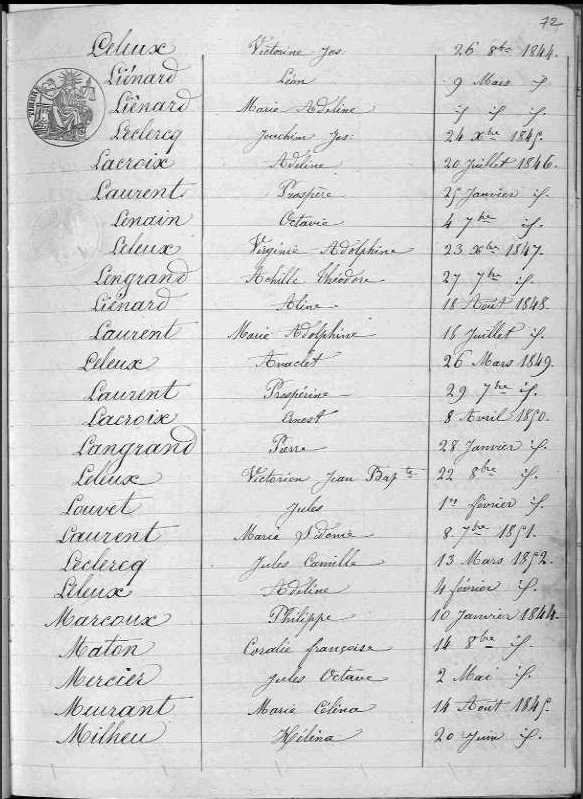 72
Leleux Victorine Jos: 26 8bre 1844.
Liénard Léon 9 Mars id.
Liénard Marie Adeline id id id.
Leclercq Joachim Jos: 24 Xbre 1845.
Lacroix Adeline 20 Juillet 1846.
Laurent Prospère 25 Janvier id.
Lenain Octavie 4 7bre id.
Leleux Virginie Adolphine 23 Xbre 1847.
Lengrand Achille Théodore 27 7bre id.
Liénard Aline 18 Août 1848.
Laurent Marie Adolphine 16 Juillet id.
Leleux Anaclet 26 Mars 1849.
Laurent Prospérine 29 7bre id.
Lacroix Ernest 8 Avril 1850.
Langrand Pierre 28 Janvier id.
Leleux Victorien Jean Bapte 22 8bre id.
Louvet Jules 1er février id.
Laurent Marie Sidonie 8 7bre 1851.
Leclercq Jules Camille 13 Mars 1852.
Leleux Adeline 4 février id.
Marcoux Philippe 10 Janvier 1844.
Maton Coralie françoise 14 8bre id.
Mercier Jules Octave 2 Mai id.
Meurant Marie Célina 14 Août 1845.
Milheu Héléna 20 Juin id.